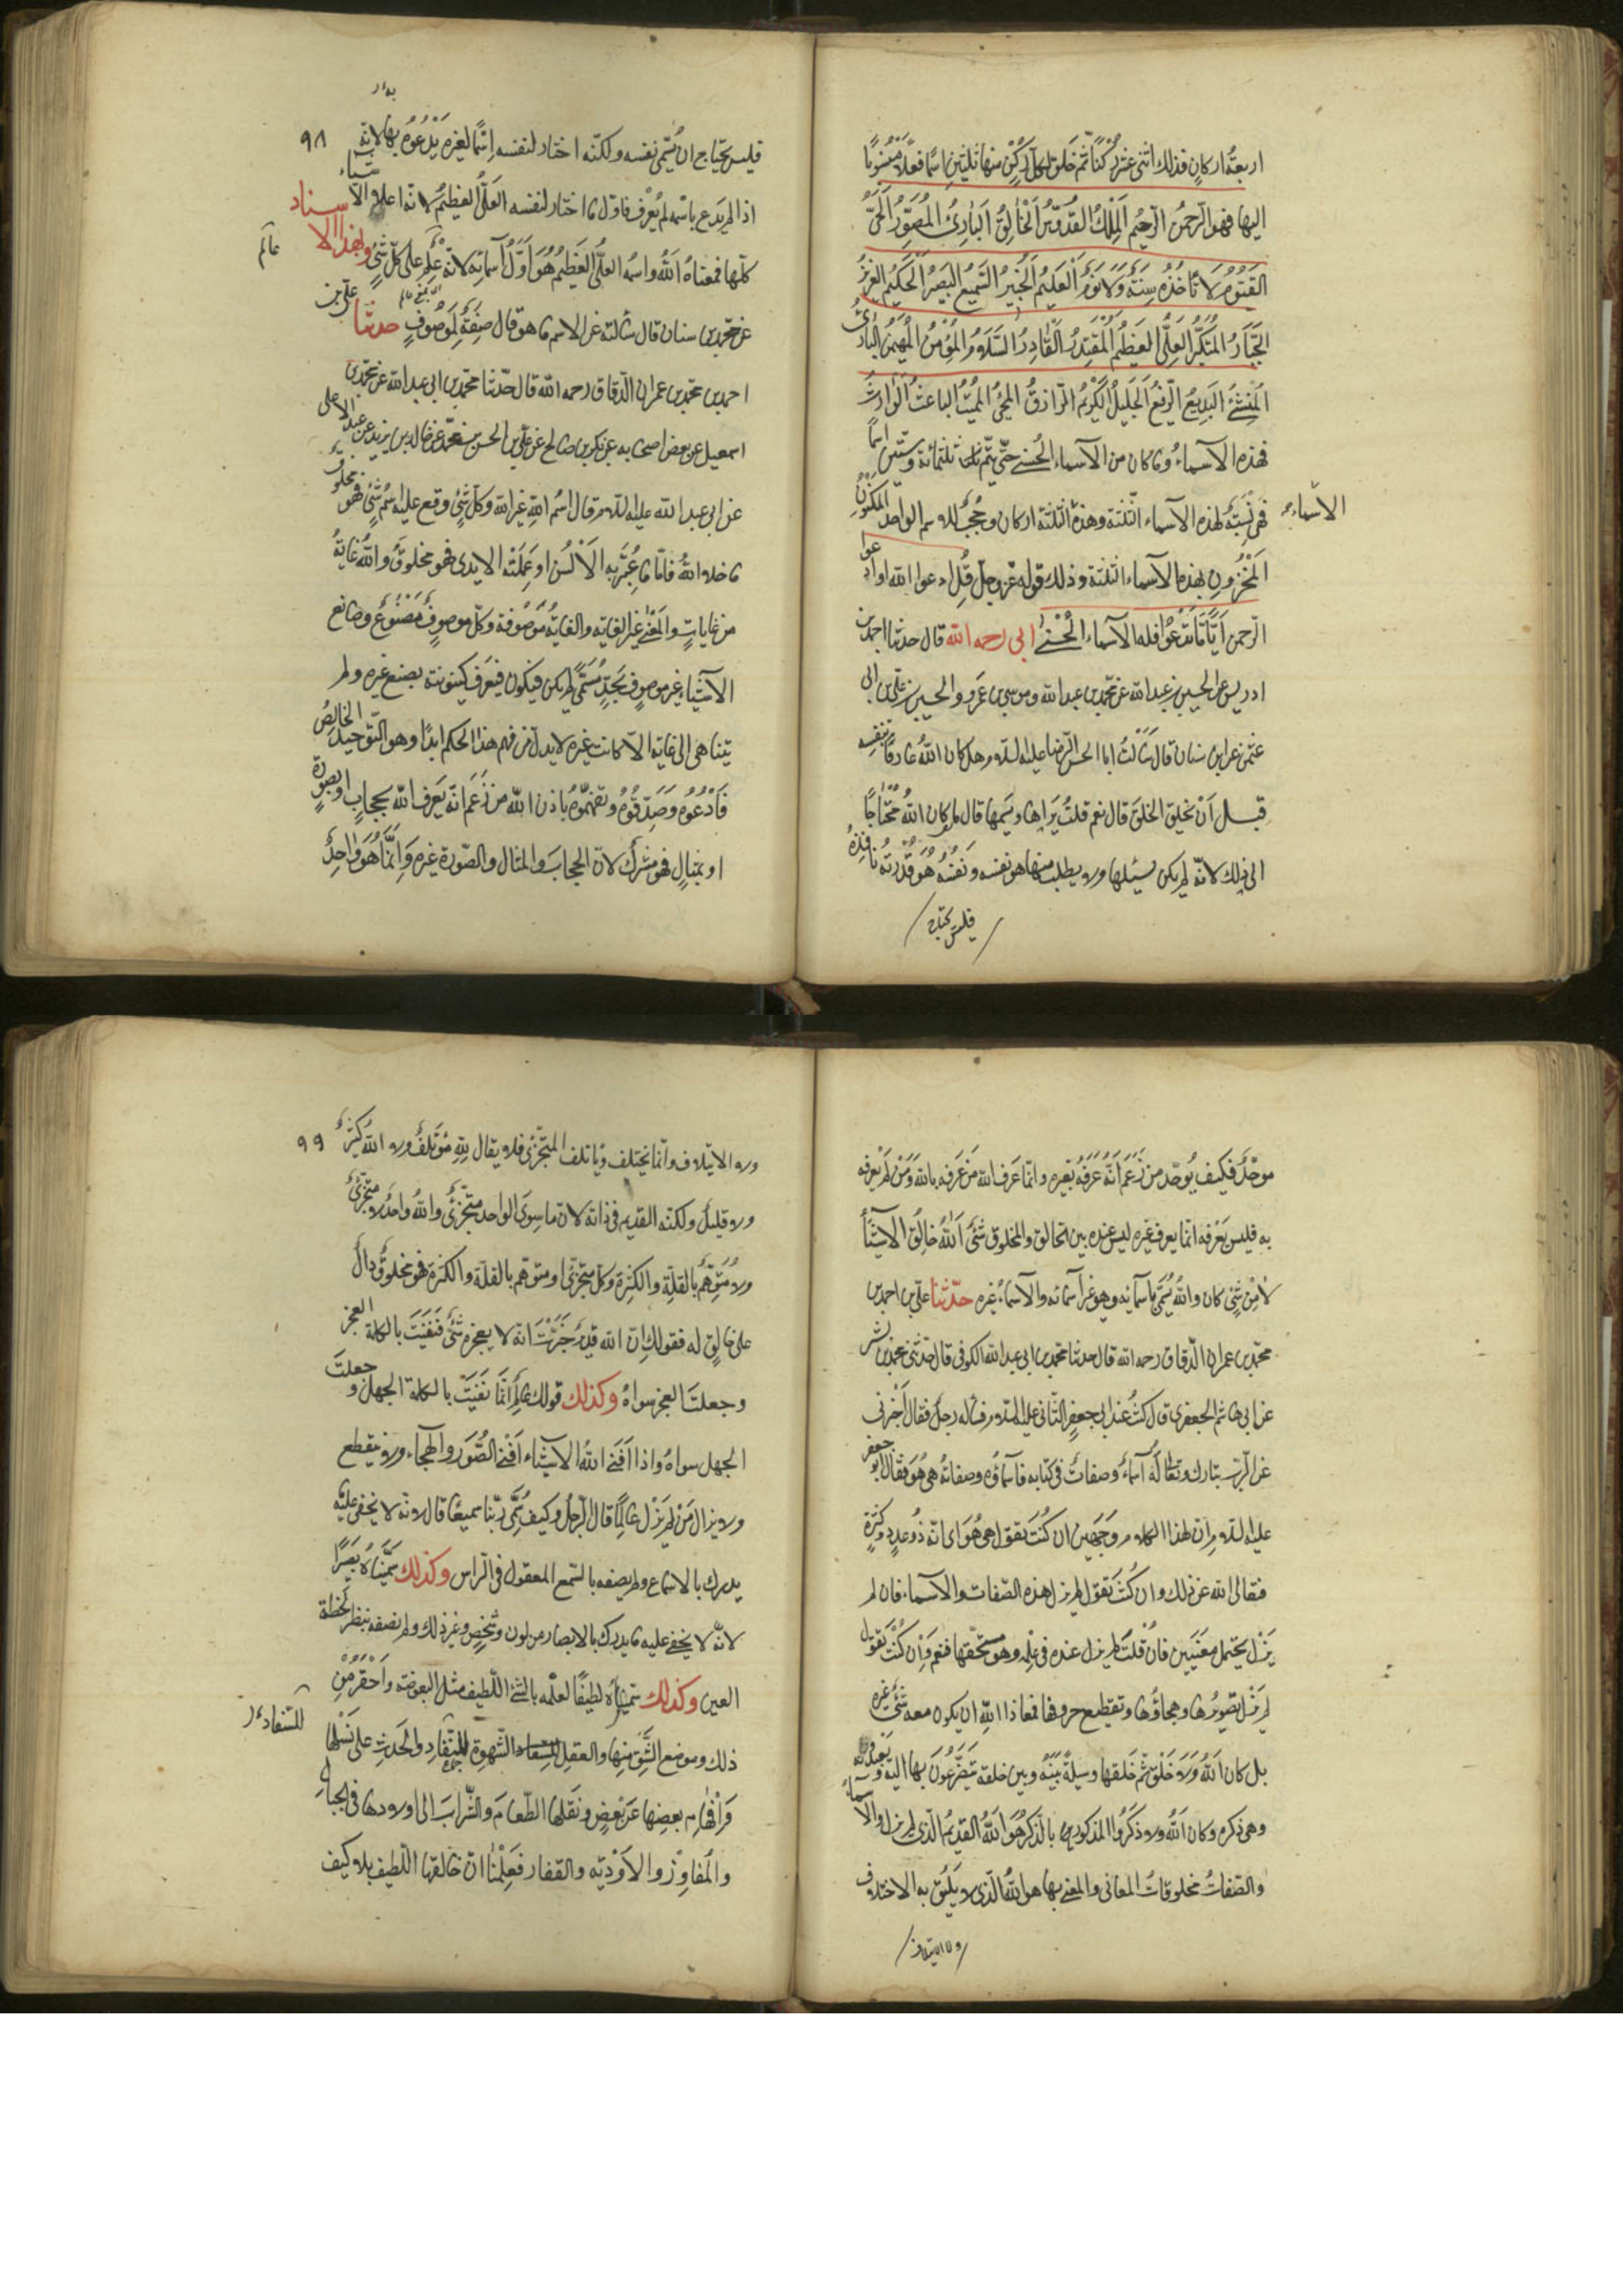 اربعة اركان فذلك اثنى عشر ركنا ثم خلق لكل ركن منها ثلثين اسما فعلا منسوبا
اليها فهو الرحمن الرحيم الملك القدوس الخالق البارئ المصور الحي
القيوم لا تأخذه سنة ولا نوم العليم الخبير السميع البصير الحكيم العزيز
الجبار المتكبر العلي العظيم المقتدر القادر السلام المؤمن المهيمن البارئ
المنشئ البديع الرفيع الجليل الكريم الرازق المحيي المميت الباعث الوارث
فهذه الاسماء وما كان من الاسماء الحسنى حتى يتم ثلثمائة وستين اسما
فهى نسبة لهذه الاسماء الثلثة وهذه الثلثة اركان وحجب للاسم الواحد المكنون
الاسماء
المخزون بهذه الاسماء الثلثة وذلك قوله عز وجل قل ادعوا الله او ادعوا
الرحمن ايا ما تدعوا فله الاسماء الحسنى ابى رحمه الله قال حدثنا احمد بن
ادريس عن الحسين بن عبد الله عن محمد بن عبد الله وموسى بن عمرو والحسين بن على بن ابى
عثمن عن ابن سنان قال سئلت ابا الحسن الرضا عليه السلام هل كان الله عارفا بنفسه
قبل ان يخلق الخلق قال نعم قلت يراها ويسمعها قال ما كان الله محتاجا
الى ذلك لانه لم يكن يسئلها ولا يطلب منها هو نفسه ونفسه هو قدرته نافذة
فليس يحتاج
٩٨
فليس يحتاج ان يسمى نفسه ولكنه اختار لنفسه اسما لغيره يدعوه بها لانه
اذا لم يدع باسمه لم يعرف فاول ما اختار لنفسه العلى العظيم لانه اعلا الاشياء
كلها فمعناه الله واسمه العلى العظيم هو اول اسمائه لانه على على كل شئ وبهذا الاسناد
عن محمد بن سنان قال سئلته عن الاسم ما هو قال صفة لموصوف حدثنا على بن
احمد بن محمد بن عمران الدقاق رحمه الله قال حدثنا محمد بن ابى عبد الله عن محمد بن
اسمعيل عن بعض اصحابه عن بكر بن صالح عن على بن الحسن بن محمد عن خالد بن يزيد عن عبد الاعلى
عن ابى عبد الله عليه السلام قال اسم الله غير الله وكل شئ وقع عليه اسم شئ فهو مخلوق
ما خلا الله فاما ما عبرته الالسن او عملته الايدى فهو مخلوق والله غاية
من غايات والمغيى غير الغاية والغاية موصوفة وكل موصوف مصنوع وصانع
الاشياء غير موصوف بحد مسمى لم يكن فيكون فيعرف كينونته بصنع غيره ولم
يتناهى الى غاية الا كانت غيره لا يذل من فهم هذا الحكم ابدا وهو التوحيد الخالص
فادعوه وصدقوه وتفهموه باذن الله من زعم انه يعرف الله بحجاب او بصورة
او بمثال فهو مشرك لان الحجاب والمثال والصورة غيره وانما هو واحد
موحد فكيف يوحد من زعم انه عرفه بغيره وانما عرف الله من عرفه بالله ومن لم يعرفه
به فليس يعرفه انما يعرف غيره ليس عنده بين الخالق والمخلوق شئ الله خالق الاشياء
لا من شئ كان والله يسمى باسمائه وهو غير اسمائه والاسماء غيره حدثنا على بن احمد بن
محمد بن عمران الدقاق رحمه الله قال حدثنا محمد بن ابى عبد الله الكوفى قال حدثنى محمد بن بشر
عن ابى هاشم الجعفرى قال كنت عند ابى جعفر الثانى عليه السلام فسأله رجل فقال اخبرنى
عن الرب تبارك وتعالى له اسماء وصفات فى كتابه فاسماؤه وصفاته هى هو فقال ابو جعفر
عليه السلام ان لهذا الكلام وجهين ان كنت تقول هى هو اى انه ذو عدد وكثرة
فتعالى الله عن ذلك وان كنت تقول لم يزل هذه الصفات والاسماء فان لم
يزل يحتمل معنيين فان قلت لم يزل عنده فى علمه وهو مستحقها فنعم وان كنت تقول
لم يزل تصويرها وهجاؤها وتقطيع حروفها فمعاذ الله ان يكون معه شئ غيره
بل كان الله ولا خلق ثم خلقها وسيلة بينه وبين خلقه يتضرعون بها اليه ويعبدونه
وهى ذكره وكان الله ولا ذكر والمذكور بالذكر هو الله القديم الذى لم يزل والاسماء
والصفات مخلوقات المعانى والمعنى بها هو الله الذى لا يليق به الاختلاف
ولا الايتلاف
٩٩
ولا الايتلاف وانما يختلف ويأتلف المتجزئ فلا يقال لله مؤتلف ولا الله كثير
ولا قليل ولكنه القديم فى ذاته لان ما سوى الواحد متجزئ والله واحد لا متجزئ
ولا متوهم بالقلة والكثرة وكل متجزئ او متوهم بالقلة والكثرة فهو مخلوق دال
على خالق له فقولك ان الله قدير خبرت انه لا يعجزه شئ فنفيت بالكلمة العجز
وجعلت العجز سواه وكذلك قولك عالم انما نفيت بالكلمة الجهل وجعلت
الجهل سواه واذا افنى الله الاشياء افنى الصور والهجاء ولا ينقطع
ولا يزال من لم يزل عالما قال الرجل وكيف سمى ربنا سميعا قال لانه لا يخفى عليه
يدرك بالاسماع ولم يصفه بالسمع المعقول فى الراس وكذلك سميناه بصيرا
لانه لا يخفى عليه ما يدرك بالابصار من لون وشخص وغير ذلك ولم نصفه بنظر لحظة
العين وكذلك سميناه لطيفا لعلمه بالشئ اللطيف مثل البعوضة واحقر من
ذلك وموضع الشق منها والعقل والشهوة للسفاد والحدب على نسلها
للسفاد
وافهام بعضها عن بعض ونقلها الطعام والشراب الى اولادها فى الجبال
والمفاوز والاودية والقفار فعلمنا ان خالقها اللطيف بلا كيف